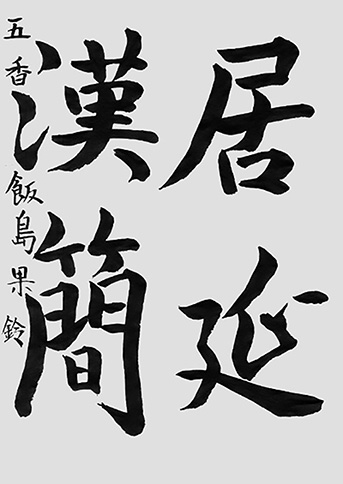 居延
漢簡
五香 飯島果鈴